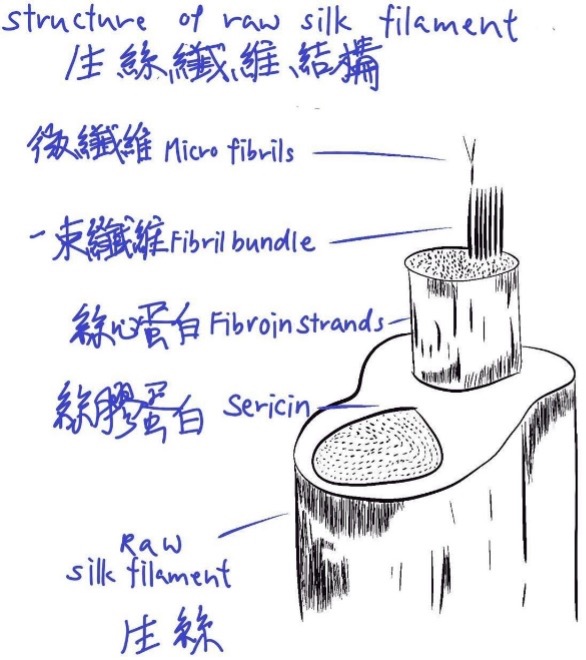 structure of raw silk filament
生絲纖維結構
微纖維 Micro fibrils
一束纖維 Fibril bundle
絲心蛋白 Fibroin strands
絲膠蛋白 Sericin
Raw
silk filament
生絲